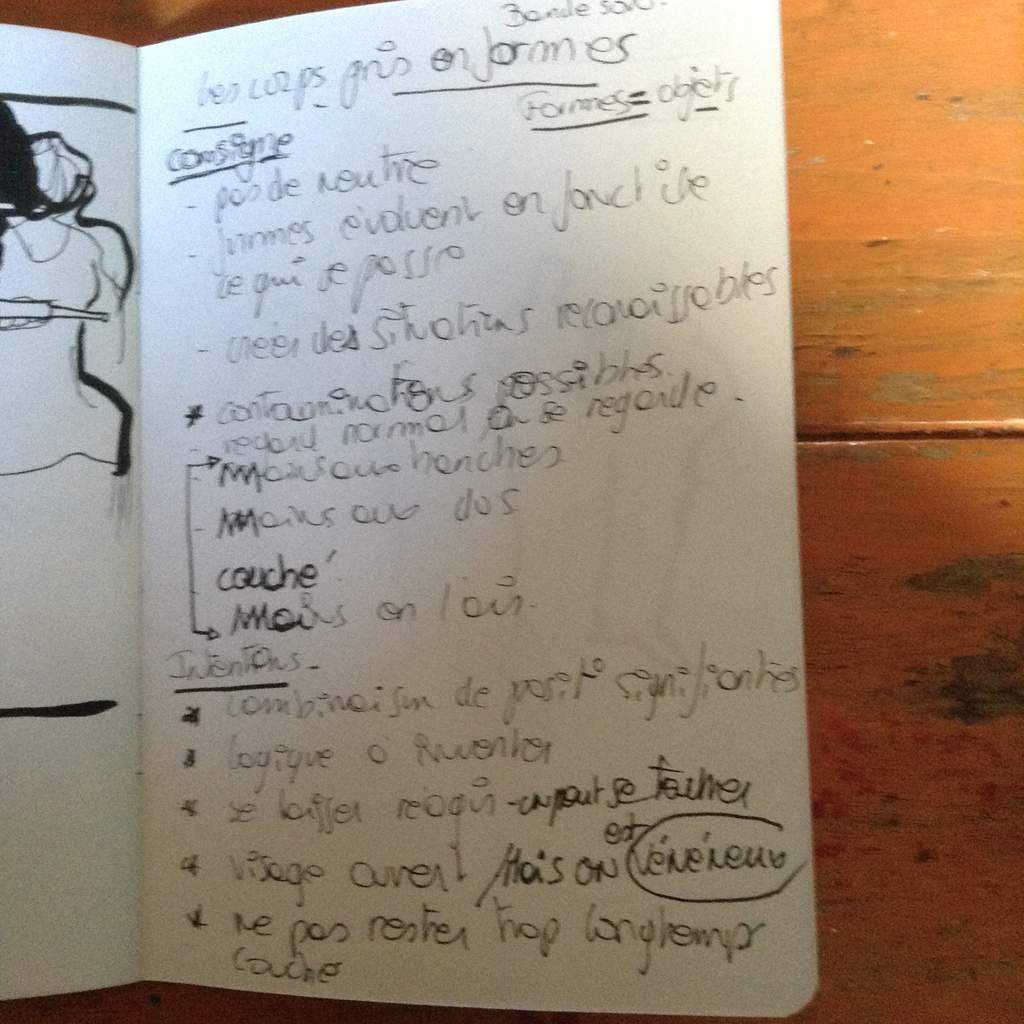 Bande son.
Les corps gris en formes
Formes = objets
consigne
- pas de neutre
- formes évoluent en fonct° de
ce qui se passe
- créer des situations reconaissables
* contaminations possibles.
- regard normal on se regarde.
- Mains aux hanches
- Mains au dos
couché
Mains en l'air.
Intentions -
* combinaison de posit° signifiantes
* logique à inventer
* se laisser réagir - on peut se toucher
* visage ouvert / Mais on est vénéneux
* ne pas rester trop longtemps
couché